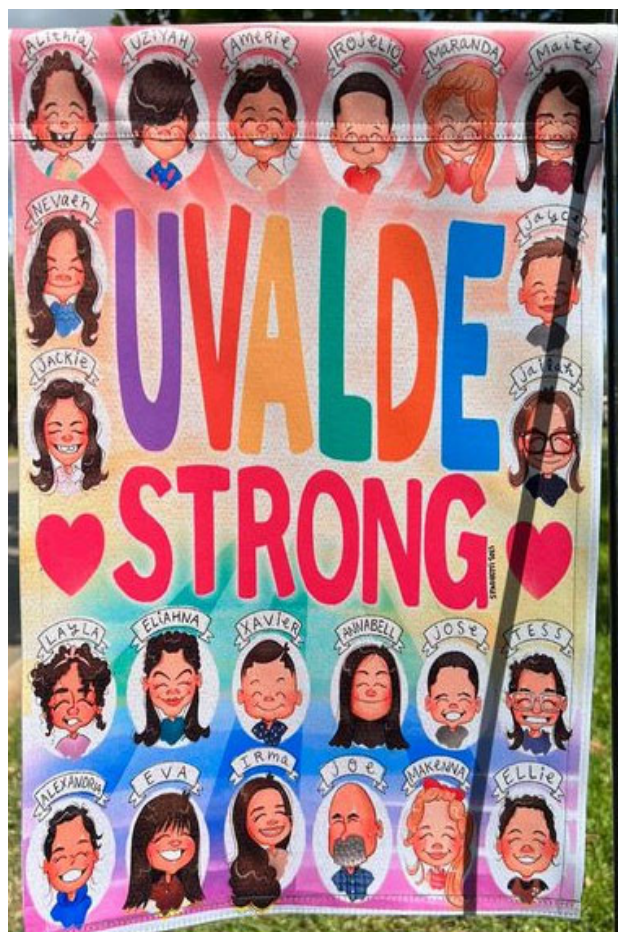 Alithia UZIYAH Amerie ROJELIO MARANDA Maite
NEVaeh
Jayce
JACKIE
Jailah
UVALDE
STRONG
LAYLA ELIAHNA XAVIER ANNABELL JOSE TESS
ALEXANDRIA EVA Irma JOE MAKENNA ELLIE